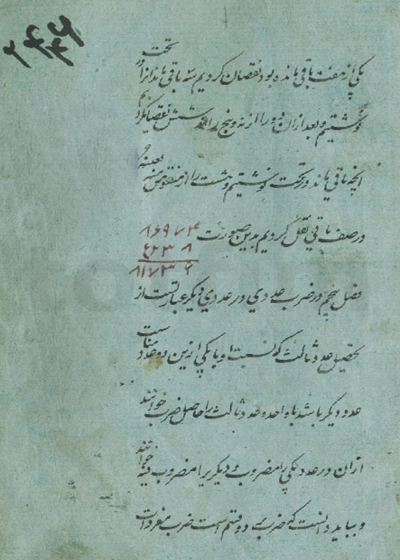 یکی از هفت باقی مانده بود نقصان کردیم سه باقی ماند تحت
نوشتیم و بعد از آن دو را از نه و پنج را از شش نقصان کرده
آنچه باقی ماند در تحت نوشتیم و هشت را از منقوص منه بعینه
در صف باقی نقل کردیم بدین صورت ۸۶۹۷۴
۵۲۳۸
۸۱۷۳۶
فصل پنجم در ضرب عددی در عددی دیگر عبارتست از
تحصیل عدد ثالث که نسبت او با یکی ازین دو عدد
عدد دیگر باشد با واحد و عدد ثالث را حاصل ضرب خوانند
از ان دو عدد یکی را مضروب و دیگریرا مضروب فیه خوانند
و بباید دانست که ضرب دو قسم است ضرب مفردات